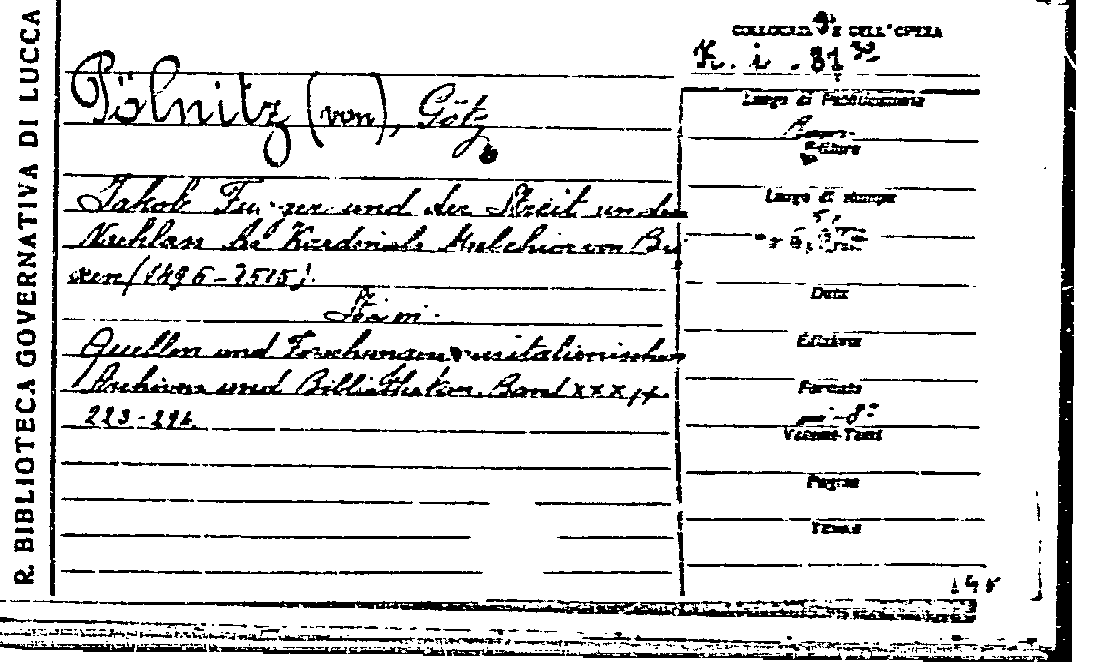 R. BIBLIOTECA GOVERNATIVA DI LUCCA
COLLOCAZ E DELL'OPERA
K. i - 81
Pölnitz (von), Götz
Luogo di Pubblicazione
Editore
Jakob Fugger und der Streit um den
Luogo di stampa
Nachlass des Kardinals Melchior von Bri
xen (1496-1515)
Data
Edizione
Quellen und Forschungen aus italienischen
Archiven und Bibliotheken. Band XXX pp.
Formato
in-8°
223-294
Volumi-Tomi
Pagine
Tavole